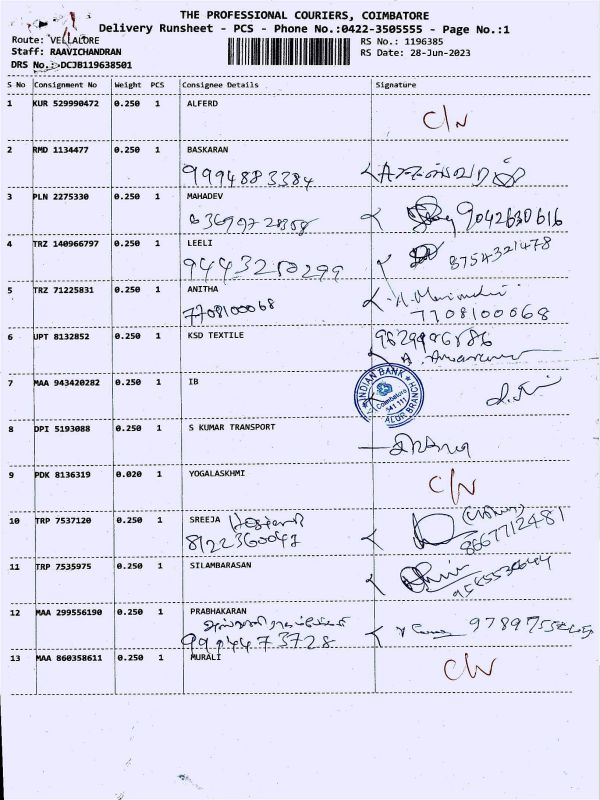 THE PROFESSIONAL COURIERS, COIMBATORE
Delivery Runsheet - PCS - Phone No.:0422-3505555 - Page No.:1
Route: VELLALORE RS No.: 1196385
Staff: RAAVICHANDRAN RS Date: 28-Jun-2023
DRS No.:>DCJB119638501
S No Consignment No Weight PCS Consignee Details Signature
1 KUR 529990472 0.250 1 ALFERD
C/N
2 RMD 1134477 0.250 1 BASKARAN
9994883384
3 PLN 2275330 0.250 1 MAHADEV
9042630616
4 TRZ 140966797 0.250 1 LEELI
9443210299 8754321478
5 TRZ 71225831 0.250 1 ANITHA
7708100068 7708100068
6 UPT 8132852 0.250 1 KSD TEXTILE
7 MAA 943420282 0.250 1 IB
INDIAN BANK
Coimbatore
641 111
8 DPI 5193088 0.250 1 S KUMAR TRANSPORT
9 PDK 8136319 0.020 1 YOGALASKHMI
C/N
10 TRP 7537120 0.250 1 SREEJA
8122360047 8667712481
11 TRP 7535975 0.250 1 SILAMBARASAN
12 MAA 299556190 0.250 1 PRABHAKARAN
9994473728
13 MAA 860358611 0.250 1 MURALI
C/N